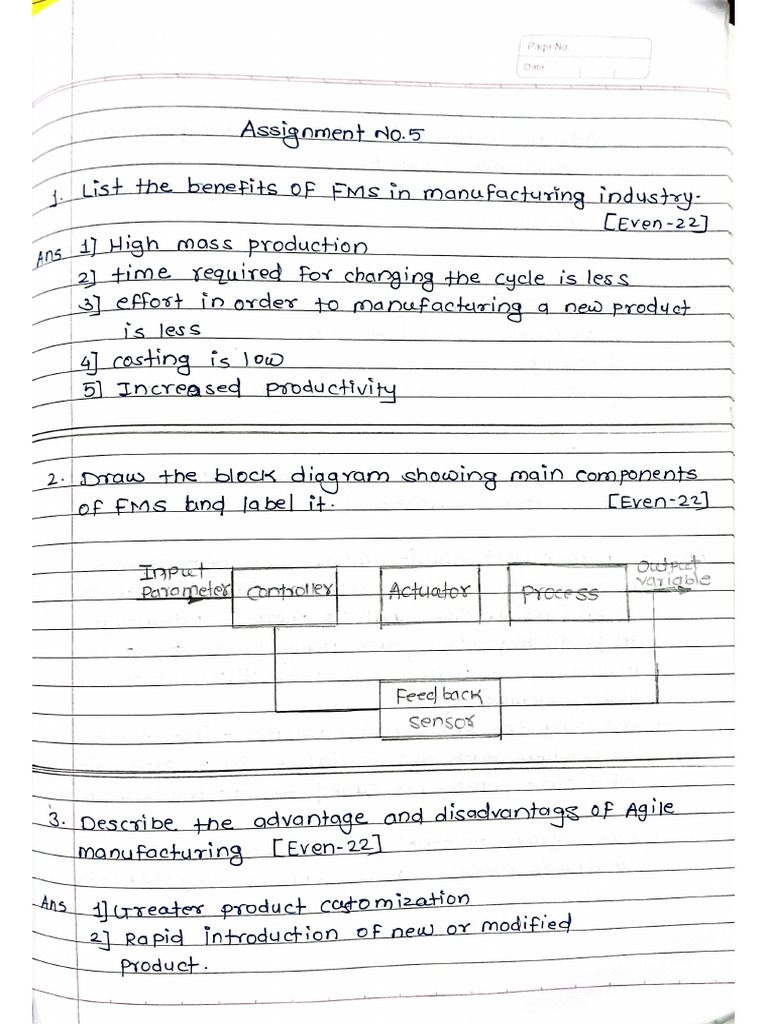 Page No.
Date
Assignment No.5
1. List the benefits of FMS in manufacturing industry.
[Even-22]
Ans 1] High mass production
2] time required for changing the cycle is less
3] effort in order to manufacturing a new product
is less
4] costing is low
5] Increased productivity
2. Draw the block diagram showing main components
of FMS and label it. [Even-22]
Input
Parameter
Controller
Actuator
Process
Output
variable
Feedback
sensor
3. Describe the advantage and disadvantags of Agile
manufacturing [Even-22]
Ans 1] Greater product customization
2] Rapid introduction of new or modified
product.